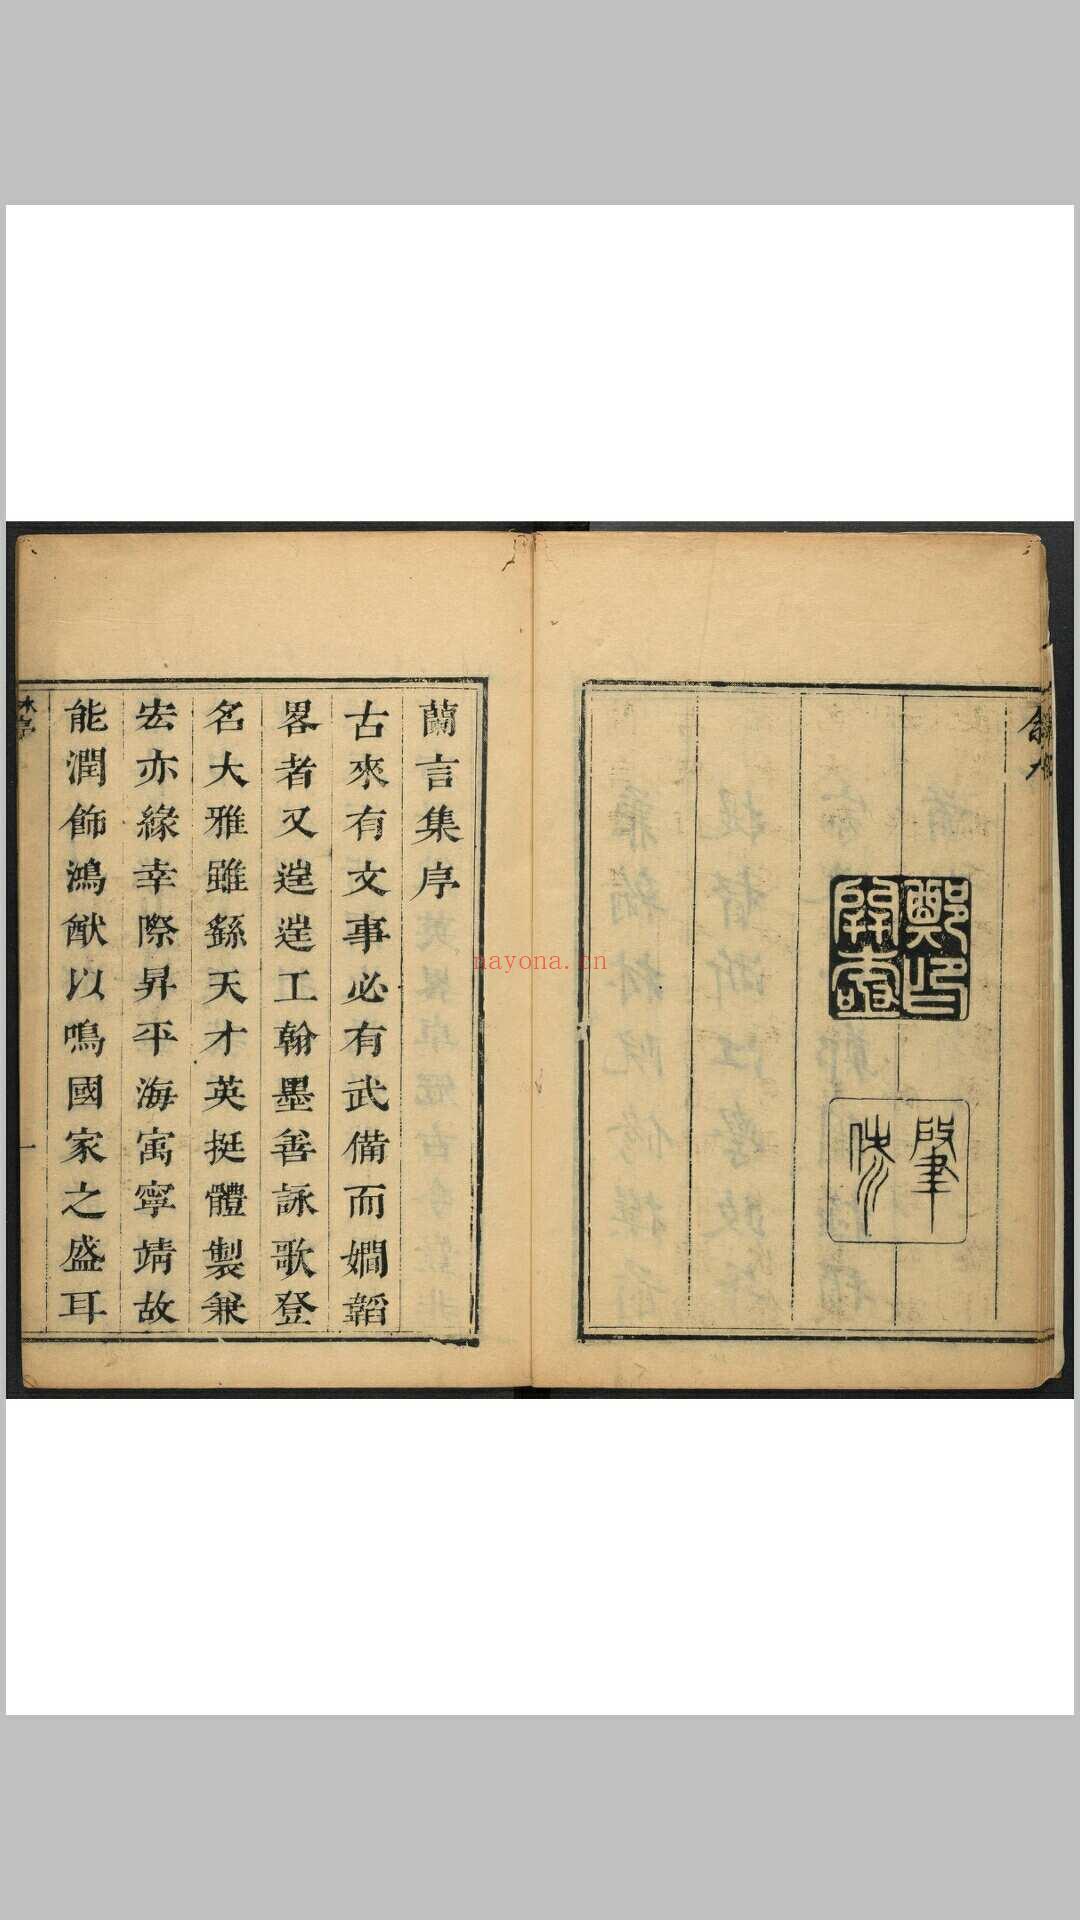 鄭印
開禧
肇
蘭言集序
古來有文事必有武備而嫺韜
畧者又遑遑工翰墨善詠歌登
名大雅雖繇天才英挺體製兼
宏亦緣幸際昇平海寓寧靖故
能潤飾鴻猷以鳴國家之盛耳
一
nayona.cn